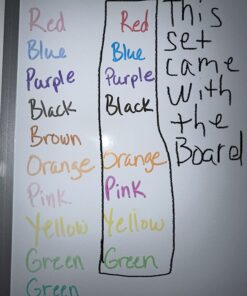 Red
Blue
Purple
Black
Brown
Orange
Pink
Yellow
Green
Green
Red
Blue
Purple
Black
Orange
Pink
Yellow
Green
This
set
came
with
the
Board